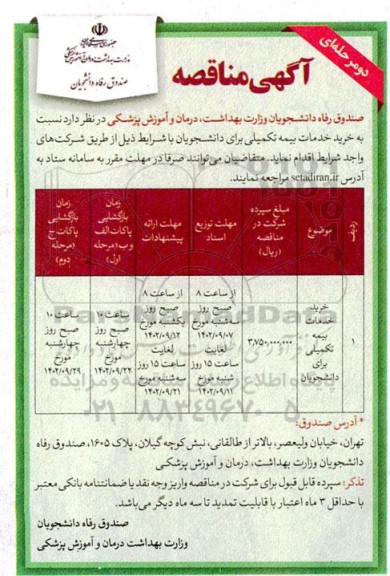 دومرحله‌ای
وزارت بهداشت، درمان و آموزش پزشکی
صندوق رفاه دانشجویان
آگهی مناقصه
صندوق رفاه دانشجویان وزارت بهداشت، درمان و آموزش پزشکی در نظر دارد نسبت
به خرید خدمات بیمه تکمیلی برای دانشجویان با شرایط ذیل از طریق شرکت‌های
واجد شرایط اقدام نماید. متقاضیان می‌توانند صرفا در مهلت مقرر به سامانه ستاد به
آدرس setadiran.ir مراجعه نمایند.
ردیف
موضوع
مبلغ سپرده
شرکت در
مناقصه
(ریال)
مهلت توزیع
اسناد
مهلت ارائه
پیشنهادات
زمان
بازگشایی
پاکات الف
و ب (مرحله
اول)
زمان
بازگشایی
پاکات ج
(مرحله
دوم)
۱
خرید
خدمات
بیمه
تکمیلی
برای
دانشجویان
۳,۷۵۰,۰۰۰,۰۰۰
از ساعت ۸
صبح روز
سه‌شنبه مورخ
۱۴۰۲/۰۹/۰۷
لغایت
ساعت ۱۵ روز
شنبه مورخ
۱۴۰۲/۰۹/۱۱
از ساعت ۸
صبح روز
یکشنبه مورخ
۱۴۰۲/۰۹/۱۲
لغایت
ساعت ۱۵ روز
سه‌شنبه مورخ
۱۴۰۲/۰۹/۲۱
ساعت ۱۰
صبح روز
چهارشنبه
مورخ
۱۴۰۲/۰۹/۲۲
ساعت ۱۰
صبح روز
چهارشنبه
مورخ
۱۴۰۲/۰۹/۲۹
۰۲۱-۸۸۳۴۹۶۷۰-۵
* آدرس صندوق:
تهران، خیابان ولیعصر، بالاتر از طالقانی، نبش کوچه گیلان، پلاک ۱۶۰۵، صندوق رفاه
دانشجویان وزارت بهداشت، درمان و آموزش پزشکی
تذکر: سپرده قابل قبول برای شرکت در مناقصه واریز وجه نقد یا ضمانتنامه بانکی معتبر
با حداقل ۳ ماه اعتبار با قابلیت تمدید تا سه ماه دیگر می‌باشد.
صندوق رفاه دانشجویان
وزارت بهداشت درمان و آموزش پزشکی